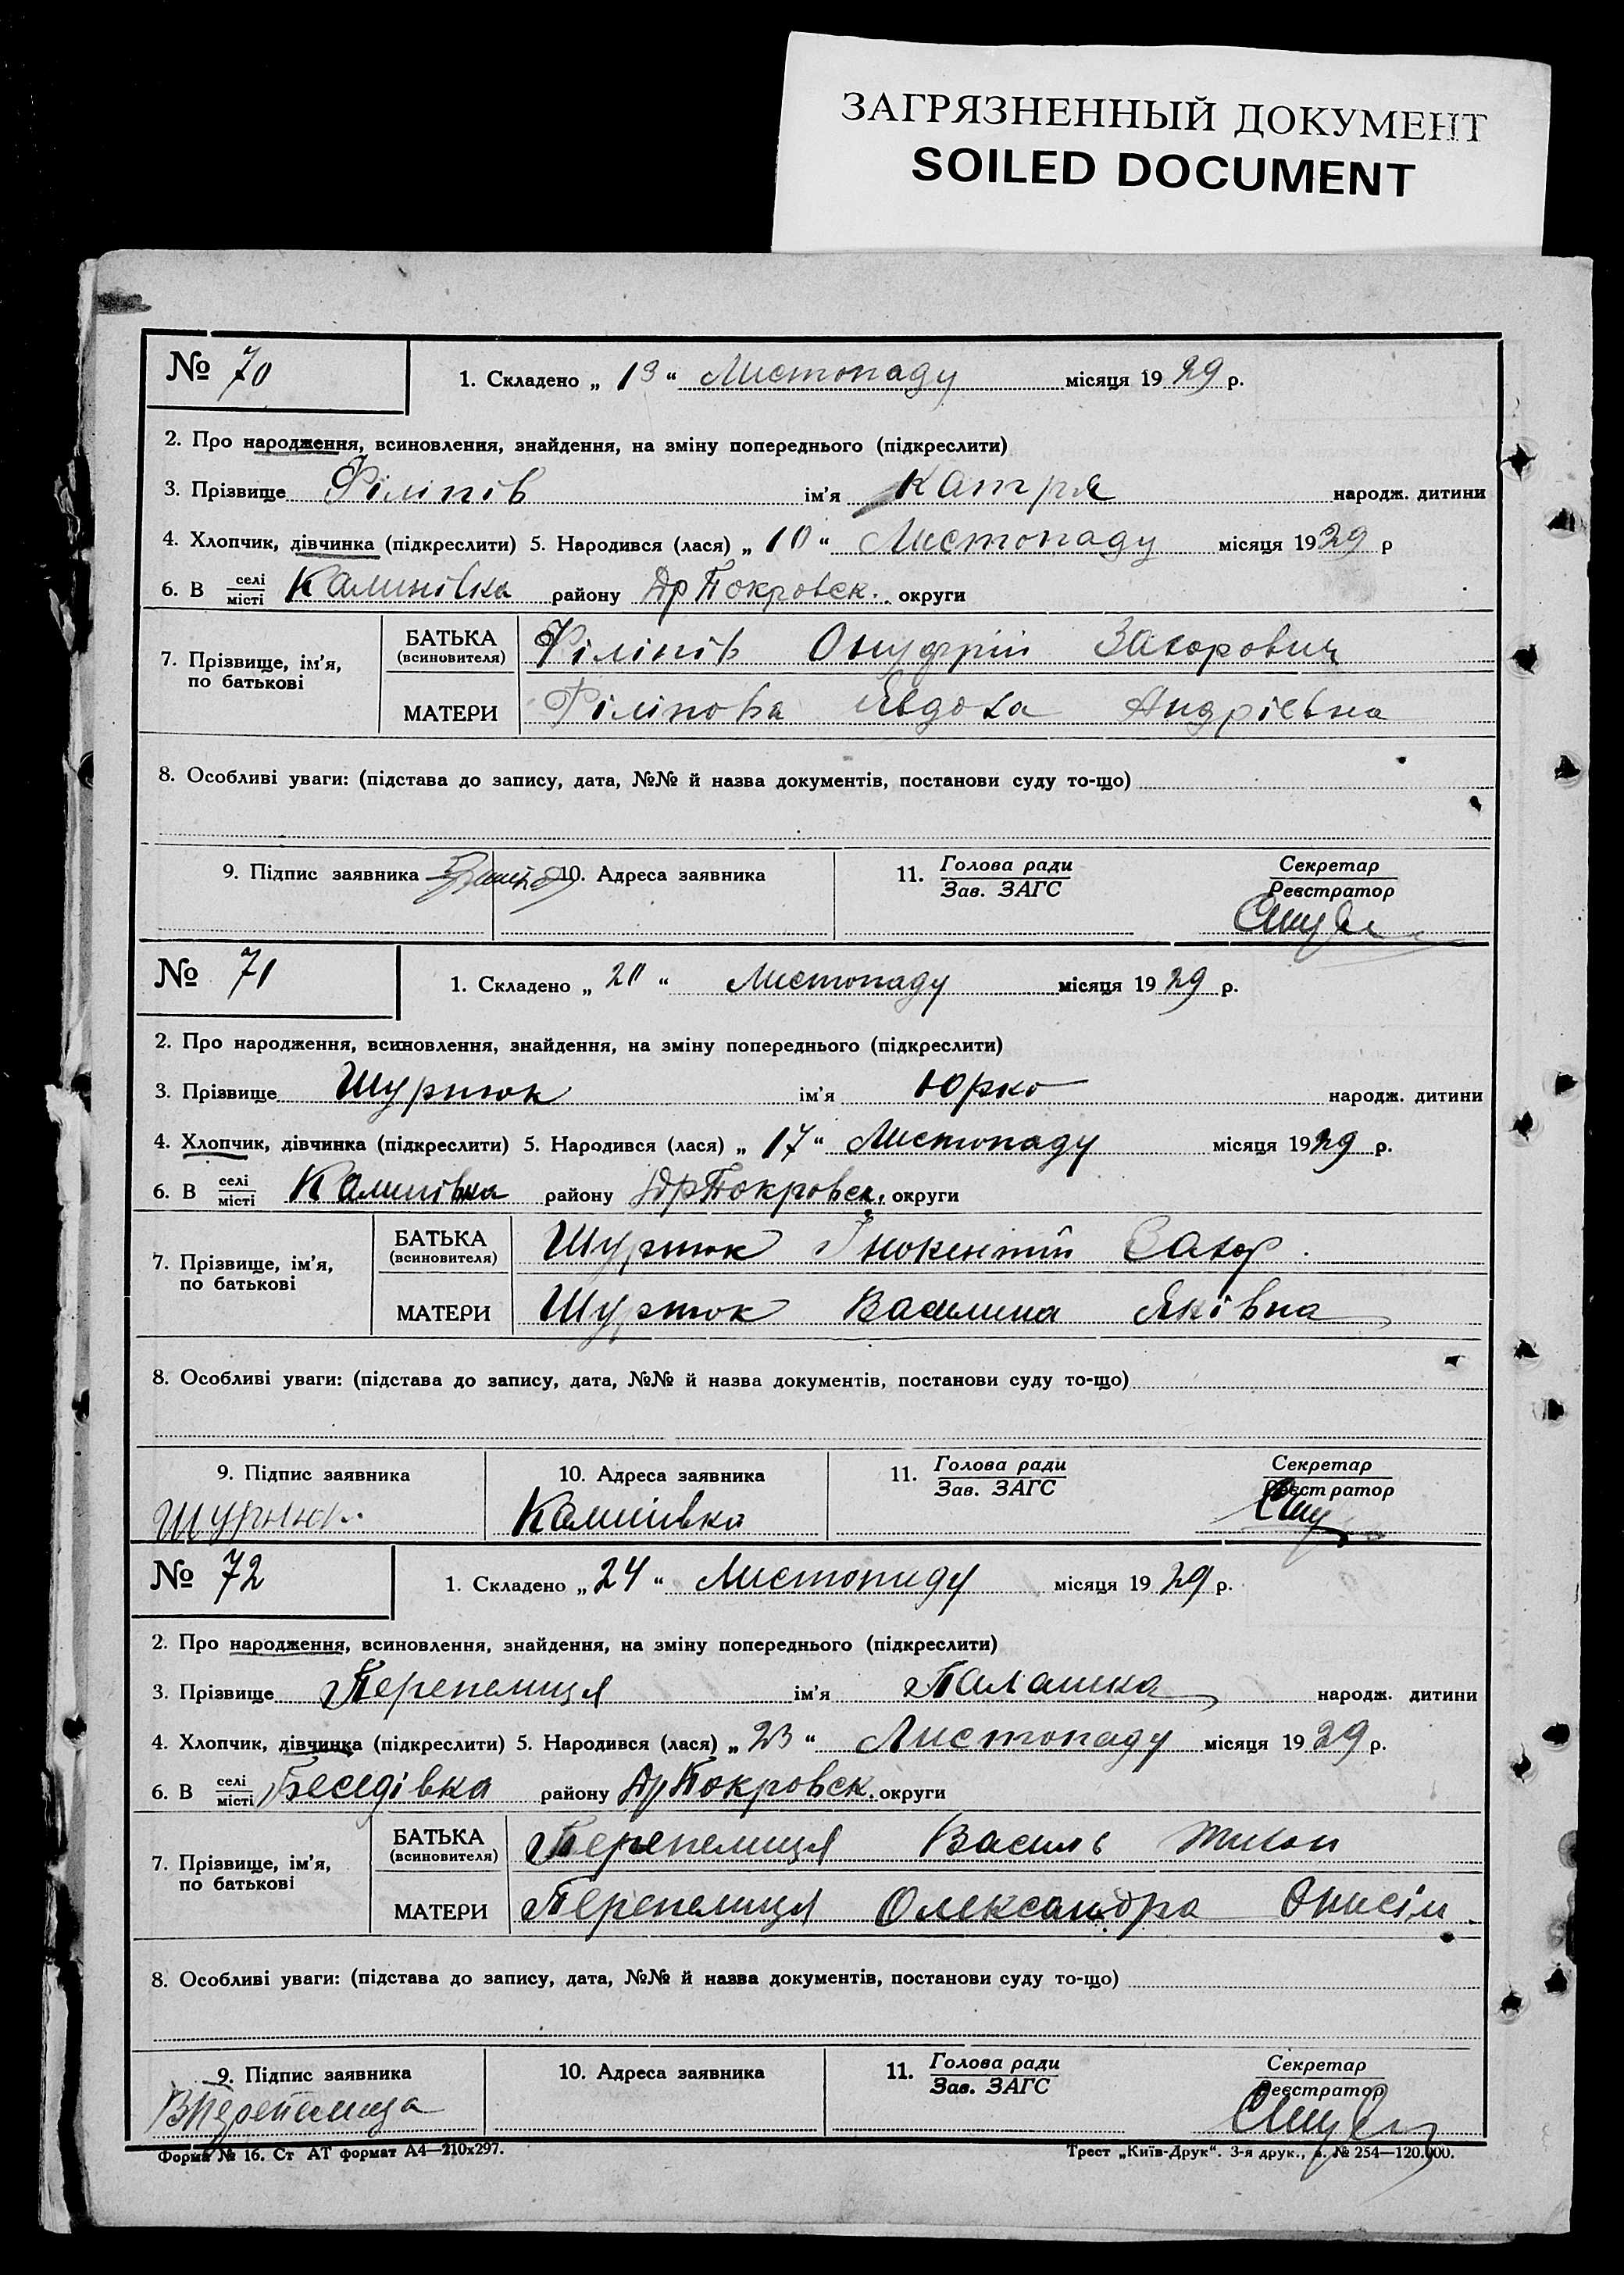 ЗАГРЯЗНЕННЫЙ ДОКУМЕНТ
SOILED DOCUMENT
№ 70
1. Складено „ 13 “ Листопаду місяця 1929 р.
2. Про народження, всиновлення, знайдення, на зміну попереднього (підкреслити)
3. Прізвище Філіпів ім'я Катря народж. дитини
4. Хлопчик, дівчинка (підкреслити) 5. Народився (лася) „ 10 “ Листопаду місяця 1929 р
6. В селі місті Калинівка району Др Покровск. округи
7. Прізвище, ім'я, по батькові
БАТЬКА (всиновителя) Філіпів Онуфрій Захорович
МАТЕРИ Філіпова Явдоха Андрієвна
8. Особливі уваги: (підстава до запису, дата, №№ й назва документів, постанови суду то-що)
9. Підпис заявника 10. Адреса заявника 11. Голова ради Зав. ЗАГС Секретар Реєстратор
№ 71
1. Складено „ 20 “ Листопаду місяця 1929 р.
2. Про народження, всиновлення, знайдення, на зміну попереднього (підкреслити)
3. Прізвище Шуртюк ім'я Юрко народж. дитини
4. Хлопчик, дівчинка (підкреслити) 5. Народився (лася) „ 17 “ Листопаду місяця 1929 р.
6. В селі місті Калинівка району Др Покровск. округи
7. Прізвище, ім'я, по батькові
БАТЬКА (всиновителя) Шуртюк Інокентій Захор.
МАТЕРИ Шуртюк Василина Яківна
8. Особливі уваги: (підстава до запису, дата, №№ й назва документів, постанови суду то-що)
9. Підпис заявника 10. Адреса заявника 11. Голова ради Зав. ЗАГС Секретар Реєстратор
Калинівка
№ 72
1. Складено „ 24 “ Листопаду місяця 1929 р.
2. Про народження, всиновлення, знайдення, на зміну попереднього (підкреслити)
3. Прізвище Перепелиця ім'я Палашка народж. дитини
4. Хлопчик, дівчинка (підкреслити) 5. Народився (лася) „ 23 “ Листопаду місяця 1929 р.
6. В селі місті Беседівка району Др Покровск. округи
7. Прізвище, ім'я, по батькові
БАТЬКА (всиновителя) Перепелиця Василь Тихон
МАТЕРИ Перепелиця Олександра Онисім.
8. Особливі уваги: (підстава до запису, дата, №№ й назва документів, постанови суду то-що)
9. Підпис заявника 10. Адреса заявника 11. Голова ради Зав. ЗАГС Секретар Реєстратор
ВПерепелица
Форма № 16. Ст АТ формат А4—210х297. Трест „Київ-Друк“. 3-я друк., з. № 254—120.000.